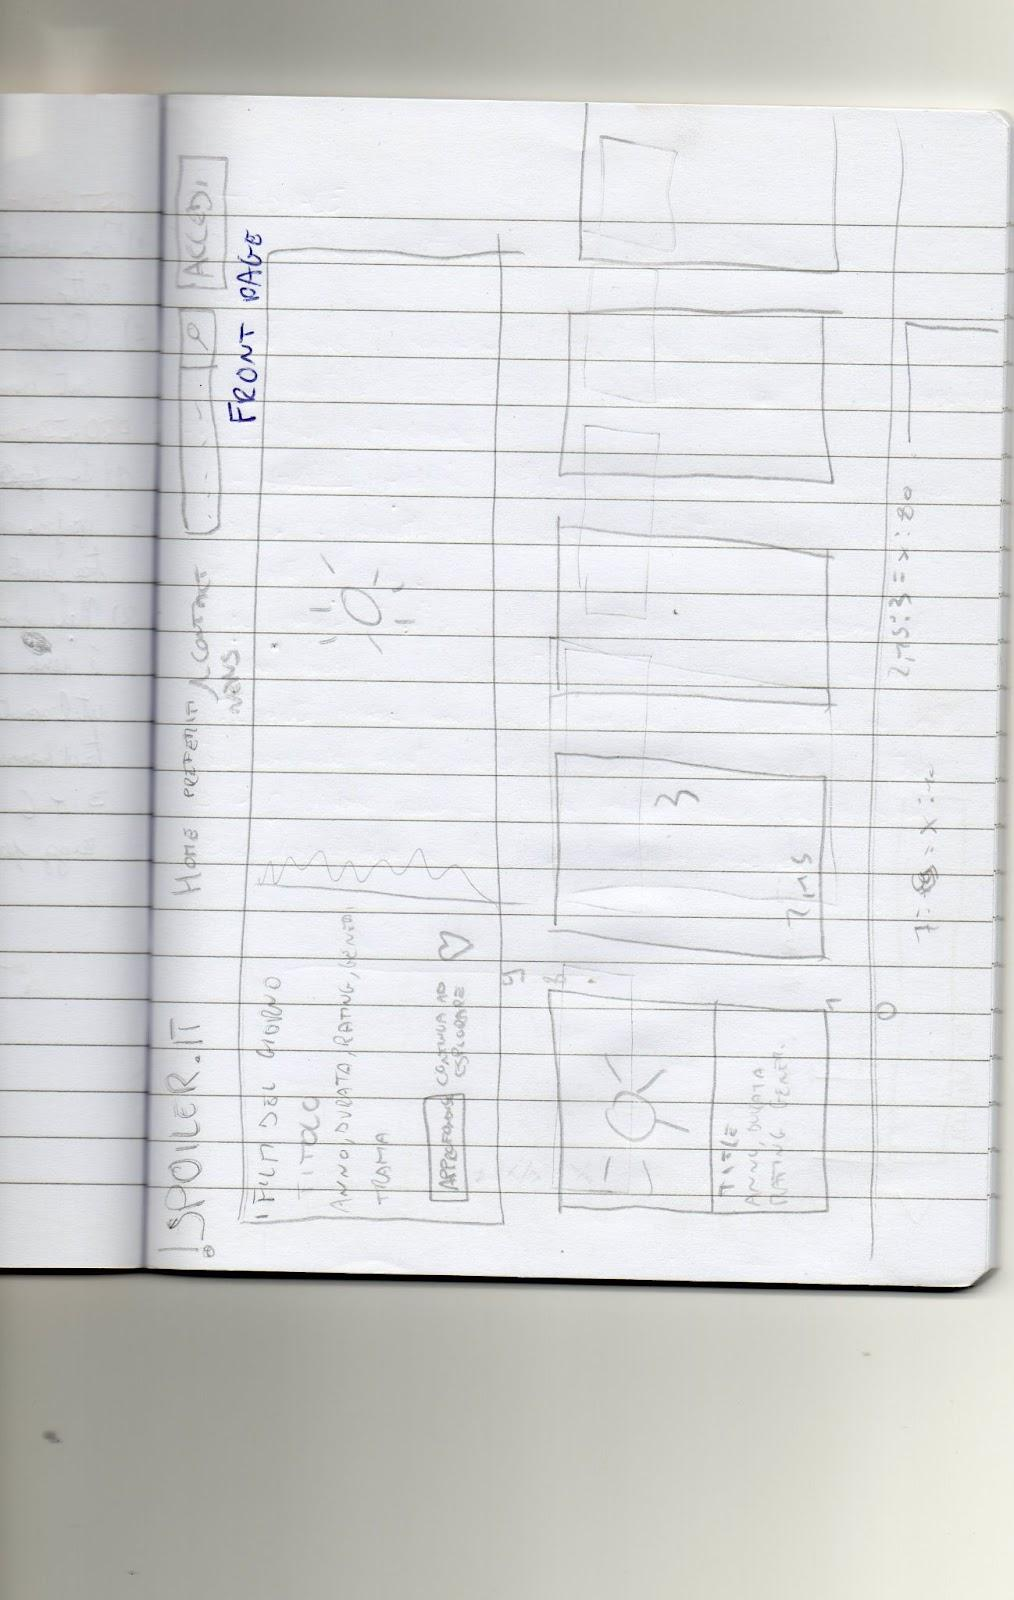 !SPOILER.IT
HOME PREFERITI CONTACT
NEWS
ACCEDI
FRONT PAGE
FILM DEL GIORNO
TITOLO
ANNO, DURATA, RATING, GENERI
TRAMA
APPROFONDISCI
CONTINUA AD
ESPLORARE
TITLE
ANNO, DURATA
RATING GENERI
3
2,145
2,145:3=x:80